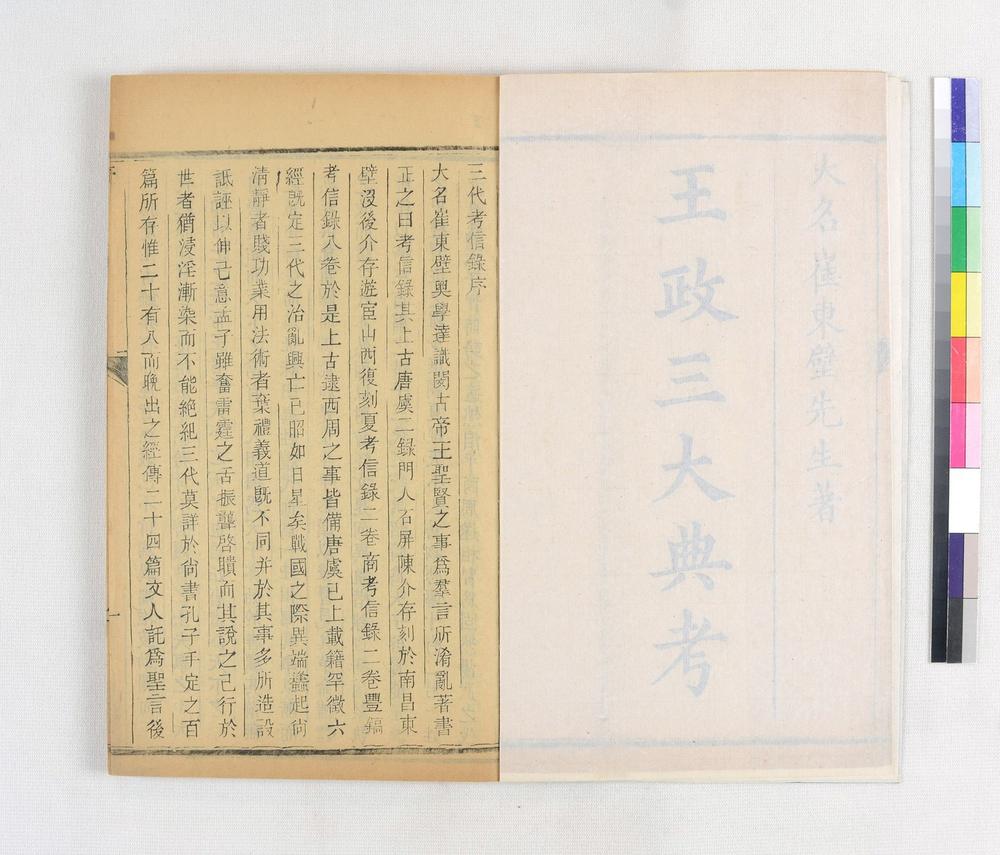 大名崔東壁先生著
王政三大典考
三代考信錄序
大名崔東壁奥學達識閔古帝王聖賢之事爲羣言所淆亂著書
正之曰考信錄其上古唐虞二錄門人石屏陳介存刻於南昌東
壁沒後介存遊宦山西復刻夏考信錄二卷商考信錄二卷豐鎬
考信錄八卷於是上古逮西周之事皆備唐虞已上載籍罕徵六
經旣定三代之治亂興亡已昭如日星矣戰國之際異端蠭起尙
淸靜者賤功業用法術者棄禮義道旣不同并於其事多所造設
詆誣以伸己意孟子雖奮雷霆之舌振聾啓聵而其說之已行於
世者猶浸淫漸染而不能絶紀三代莫詳於尙書孔子手定之百
篇所存惟二十有八而晚出之經傳二十四篇文人託爲聖言後